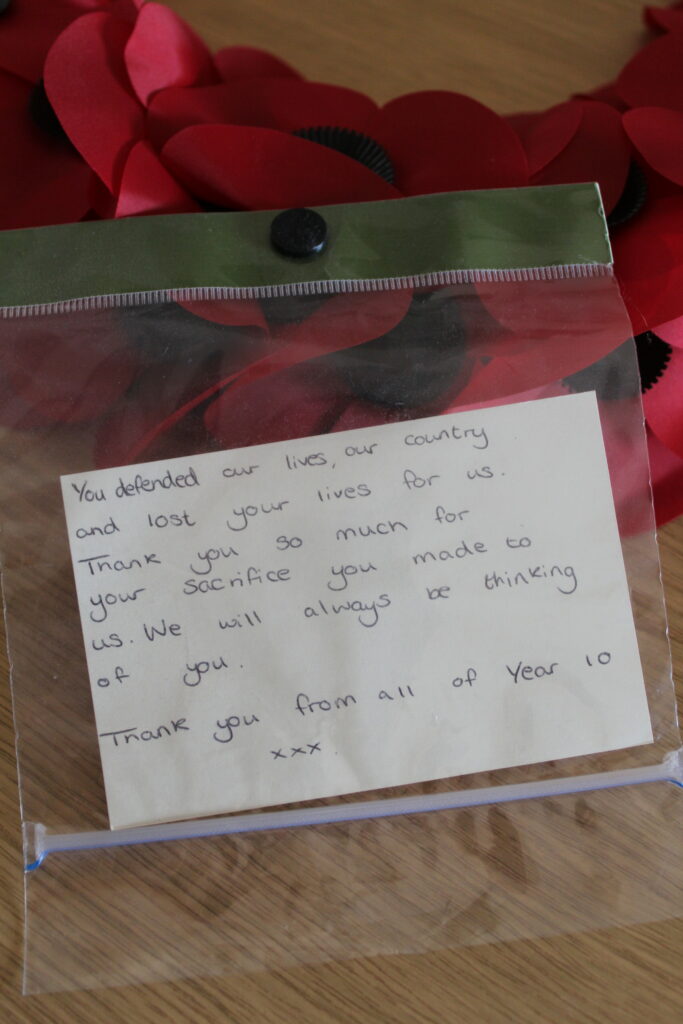 You defended our lives, our country
and lost your lives for us.
Thank you so much for
your sacrifice you made to
us. We will always be thinking
of you.
Thank you from all of Year 10
xxx.